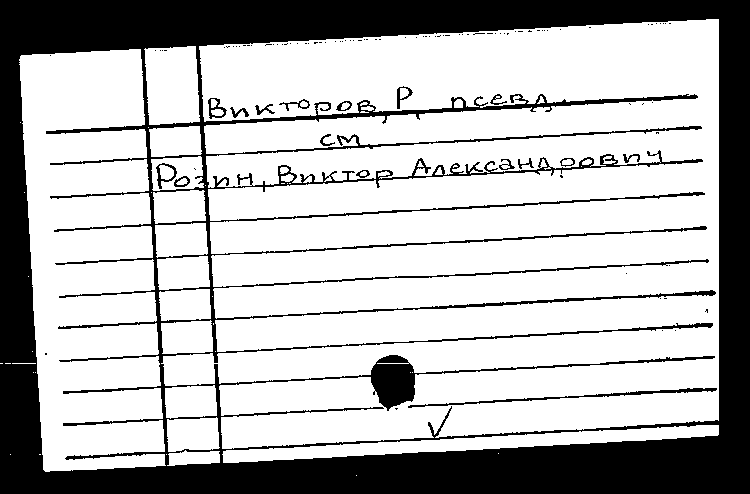 Викторов, Р. псевд.
см.
Розин, Виктор Александрович